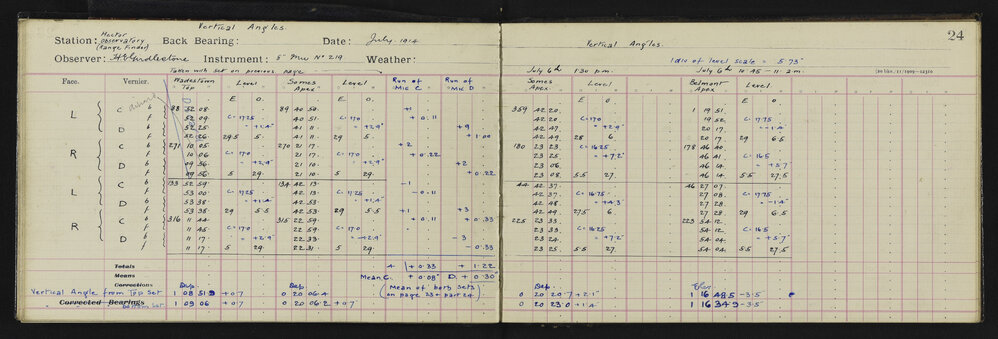 Vertical Angles.
Station: Hector Observatory (Range Finder) Back Bearing: Date: July 1914
Observer: Instrument: 5" Mic No 219 Weather:
Taken with set on previous page
Face. Vernier. Wadestown Top Level Somes Apex Level Run of Mic C Run of Mic D
E O. E O.
L C b 88 52 08. 89 40 50. +1
f 52 09. C=17.25 40 51. C=17.0 +0.11
D b 52 25 = +1.4" 41 11. = +2.9" +9
f 52 26 29.5 5. 41 11 29 5. +1.00
R C b 271 10 05 270 21 17. +2
f 10 06 C=17.0 21 17. C=17.0 +0.22
D b 09 56 = +2.9" 21 10. = +2.9" +2
f 09 56 5 29. 21 10. 5 29. +0.22
L C b 133 52 59. 134 42 13. -1
f 53 00 C=17.25 42 13. C=17.25 -0.11
D b 53 38 42 53.
f 53 38 29 5.5 42 53. 29 5.5 +1 +3
R C b 316 11 44 315 22 59. +0.11 +0.33
f 11 45 C=17.0 22 59 C=17.0
D b 11 17. = +2.9" 22 33. = +2.9" -3
f 11 17 5 29. 22 31. 5 29 -0.33
Totals 4 +0.33 +1.22
Means Mean C. +0.08" D. +0.30"
Corrections Dep. Dep. (Mean of both sets
Vertical Angle from Top Set 1 08 51.9 +0.7 0 20 06.4 on page 23 + part 24)
Corrected Bearings Bottom Set 1 09 06 +0.7 0 20 06.2 +0.7
24
Vertical Angles.
1 div of level scale = 5.73"
July 6th 1:30 p.m. July 6th 10.45 - 11 a.m.
Somes Apex Level Belmont Apex Level.
E O. E O.
359 42 20. 1 19 51.
42 20. C=17.0 19 52. C=17.75
42 47. = +2.9" 20 17. = -1.4"
42 49. 28 6 20 17 29 6.5
180 23 23. C=16.25 178 46 40.
23 25. = +7.2" 46 41 C=16.5
23 06. 46 14. = +5.7"
23 08. 5.5 27. 46 14 5.5 27.5
44 42 37. 46 27 07.
42 37. C=16.75 27 08. C=17.75
42 48. = +4.3" 27 28. = -1.4"
42 49. 27.5 6 27 28. 29 6.5
225 23 33. 223 54 12.
23 33. C=16.25 54 12. C=16.5
23 24 = +7.2" 54 04. = +5.7"
23 25. 5.5 27 54 04 5.5 27.5
Dep. Elev.
0 20 20.7 +2.1" 1 16 48.5 -3.5
0 20 23.0 +1.4 1 16 34.9 -3.5